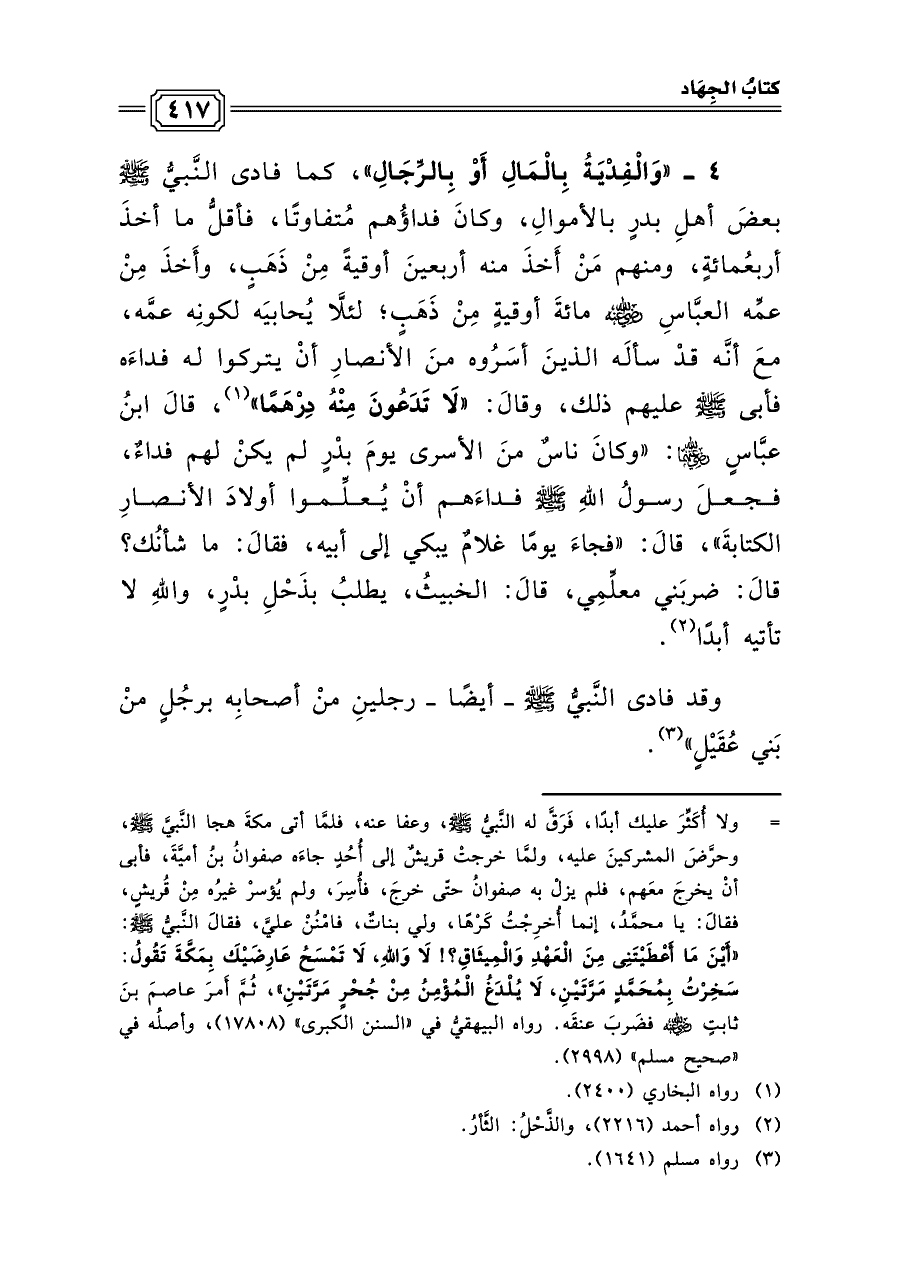 كتابُ الجِهَاد
٤١٧
٤ ـ «وَالْفِدْيَةُ بِالْمَالِ أَوْ بِالرِّجَالِ»، كما فادى النَّبيُّ ﷺ
بعضَ أهلِ بدرٍ بالأموالِ، وكانَ فداؤُهم مُتفاوتًا، فأقلُّ ما أخذَ
أربعُمائةٍ، ومنهم مَنْ أَخذَ منه أربعينَ أوقيةً مِنْ ذَهَبٍ، وأَخذَ مِنْ
عمِّه العبَّاسِ رضي الله عنه مائةَ أوقيةٍ مِنْ ذَهَبٍ؛ لئلَّا يُحابيَه لكونِه عمَّه،
معَ أنَّه قدْ سألَه الذينَ أسَرُوه منَ الأنصارِ أنْ يتركوا له فداءَه
فأبى ﷺ عليهم ذلك، وقالَ: «لَا تَدَعُونَ مِنْهُ دِرْهَمًا»(١)، قالَ ابنُ
عبَّاسٍ رضي الله عنهما: «وكانَ ناسٌ منَ الأسرى يومَ بدْرٍ لم يكنْ لهم فداءٌ،
فجعلَ رسولُ اللهِ ﷺ فداءَهم أنْ يُعلِّموا أولادَ الأنصارِ
الكتابةَ»، قالَ: «فجاءَ يومًا غلامٌ يبكي إلى أبيه، فقالَ: ما شأنُك؟
قالَ: ضربَني معلِّمِي، قالَ: الخبيثُ، يطلبُ بذَحْلِ بدْرٍ، واللهِ لا
تأتيه أبدًا(٢).
وقد فادى النَّبيُّ ﷺ ـ أيضًا ـ رجلينِ منْ أصحابِه برجُلٍ منْ
بَني عُقَيْلٍ»(٣).
= ولا أُكَثِّرَ عليك أبدًا، فَرَقَّ له النَّبيُّ ﷺ، وعفا عنه، فلمَّا أتى مكةَ هجا النَّبيَّ ﷺ،
وحرَّضَ المشركينَ عليه، ولمَّا خرجتْ قريشٌ إلى أُحُدٍ جاءَه صفوانُ بنُ أميَّةَ، فأبى
أنْ يخرجَ معَهم، فلم يزلْ به صفوانُ حتّى خرجَ، فأُسِرَ، ولم يُؤسرْ غيرُه مِنْ قُريشٍ،
فقالَ: يا محمَّدُ، إنما أُخرِجْتُ كَرْهًا، ولي بناتٌ، فامْنُنْ عليَّ، فقالَ النَّبيُّ ﷺ:
«أَيْنَ مَا أَعْطَيْتَنِي مِنَ الْعَهْدِ وَالْمِيثَاقِ؟! لَا وَاللهِ، لَا تَمْسَحُ عَارِضَيْكَ بِمَكَّةَ تَقُولُ:
سَخِرْتُ بِمُحَمَّدٍ مَرَّتَيْنِ، لَا يُلْدَغُ الْمُؤْمِنُ مِنْ جُحْرٍ مَرَّتَيْنِ»، ثُمَّ أَمرَ عاصمَ بنَ
ثابتٍ رضي الله عنه فضَربَ عنقَه. رواه البيهقيُّ في «السنن الكبرى» (١٧٨٠٨)، وأصلُه في
«صحيح مسلم» (٢٩٩٨).
(١) رواه البخاري (٢٤٠٠).
(٢) رواه أحمد (٢٢١٦)، والذَّحْلُ: الثَّأرُ.
(٣) رواه مسلم (١٦٤١).